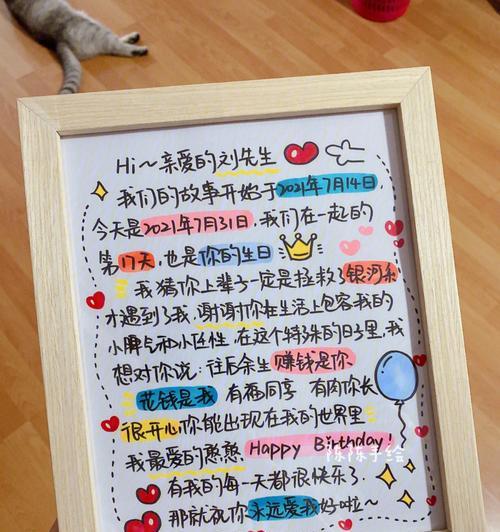 Hi~亲爱的刘先生
我们的故事开始于2021年7月14日,
今天是2021年7月31日,我们在一起的
第17天,也是你的生日
我猜你上辈子一定是拯救了银河系
才遇到了我,谢谢你在生活上包容我的
小脾气和小任性,在这个特殊的日子里,我
想对你说:往后余生 赚钱是你
花钱是我 有福同享 有肉你长
很开心你能出现在我的世界里
我最爱的憨憨 Happy Birthday!
陈陈手绘
有我的每一天都很快乐了
那就祝你永远爱我好啦~